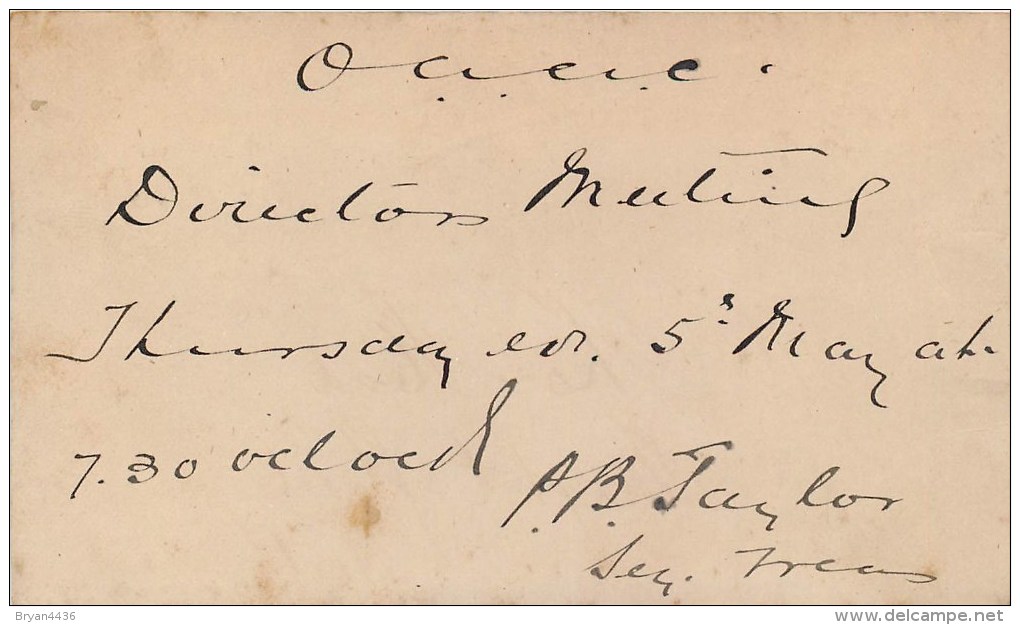 O.a.a.c.
Directors Meeting
Thursday 5 May at
7.30 oclock
P.B. Taylor
Secy. Treas
Bryan4436
www.delcampe.net